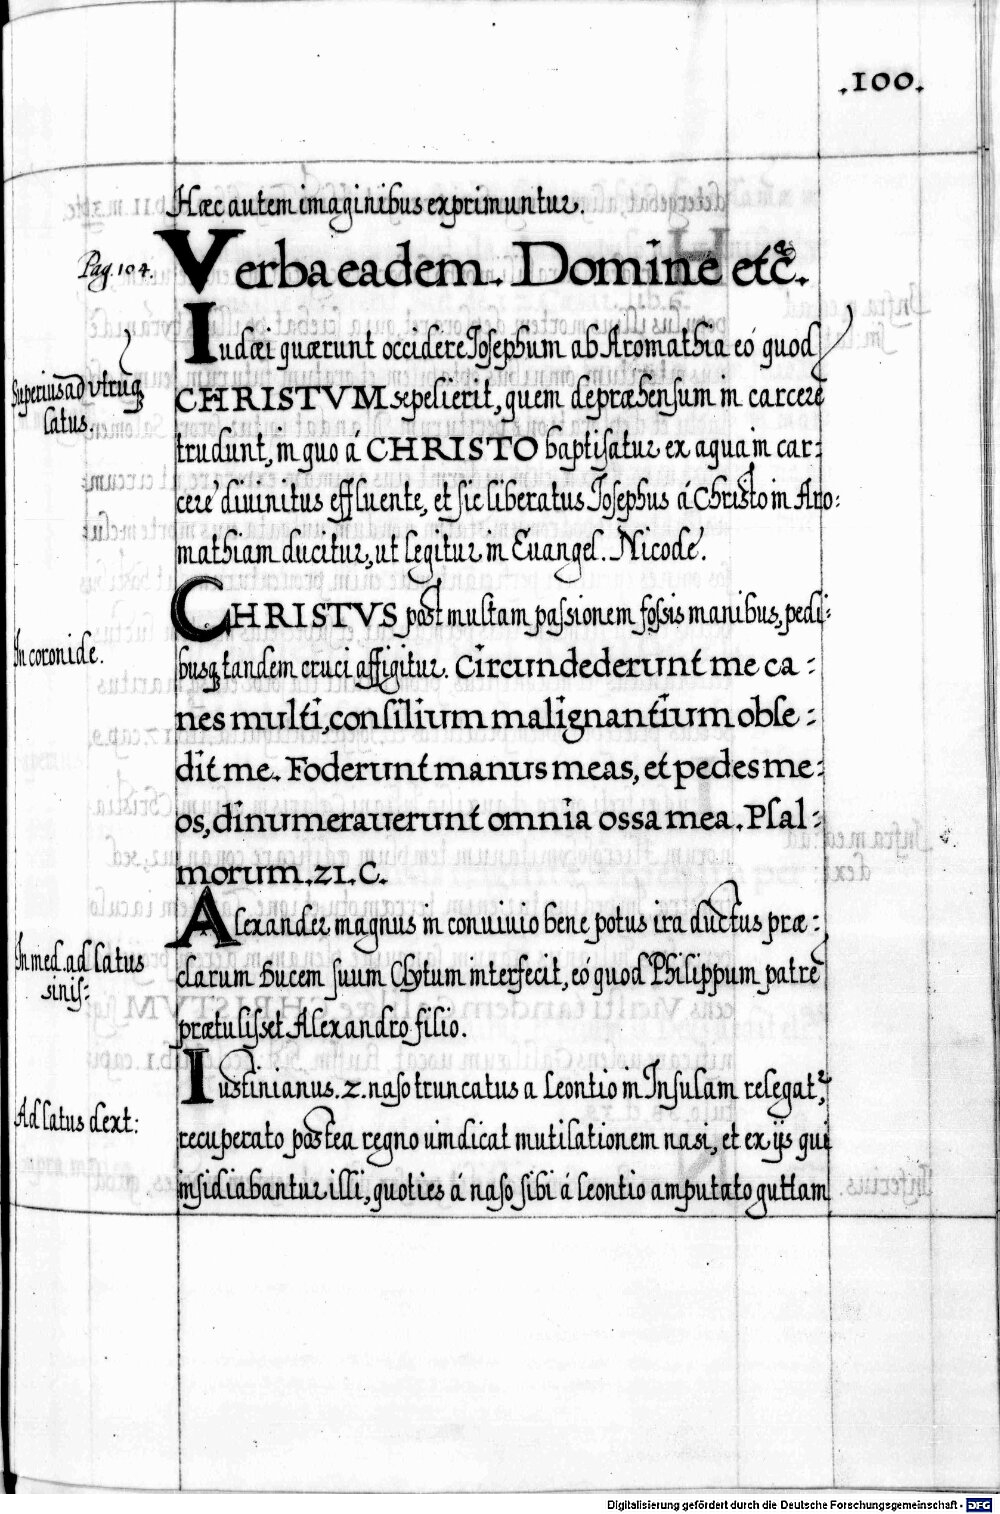 .100.
Hæc autem imaginibus exprimuntur.
Pag. 104.
Verba eadem. Domine etc̃.
Iudæi quærunt occidere Josephum ab Aromathia eó quod
Superius ad utrũq
latus.
CHRISTVM sepelierit, quem depræhensum in carcere
trudunt, in quo á CHRISTO baptisatur ex aqua in car:
cere divinitus effluente, et sic liberatus Josephus á Christo in Aro:
mathiam ducitur, ut legitur in Euangel. Nicode.
In coronide.
CHRISTVS post multam passionem fossis manibus, pedi:
busq tandem cruci affigitur. Circumdederunt me ca:
nes multi, consilium malignantium obse:
dit me. Foderunt manus meas, et pedes me:
os, dinumerauerunt omnia ossa mea. Psal:
morum. 21. C.
In med. ad latus
sinis:
Alexander magnus in conuiuio bene potus ira ductus præ:
clarum Ducem suum Clytum interfecit, eó quod Philippum patrē
prætulisset Alexandro filio.
Ad latus dext:
Iustinianus. 2. naso truncatus a Leontio in Insulam relegat,
recuperato postea regno uindicat mutilationem nasi, et ex ijs qui
insidiabantur illi, quoties á naso sibi á Leontio amputato guttam
Digitalisierung gefördert durch die Deutsche Forschungsgemeinschaft - DFG